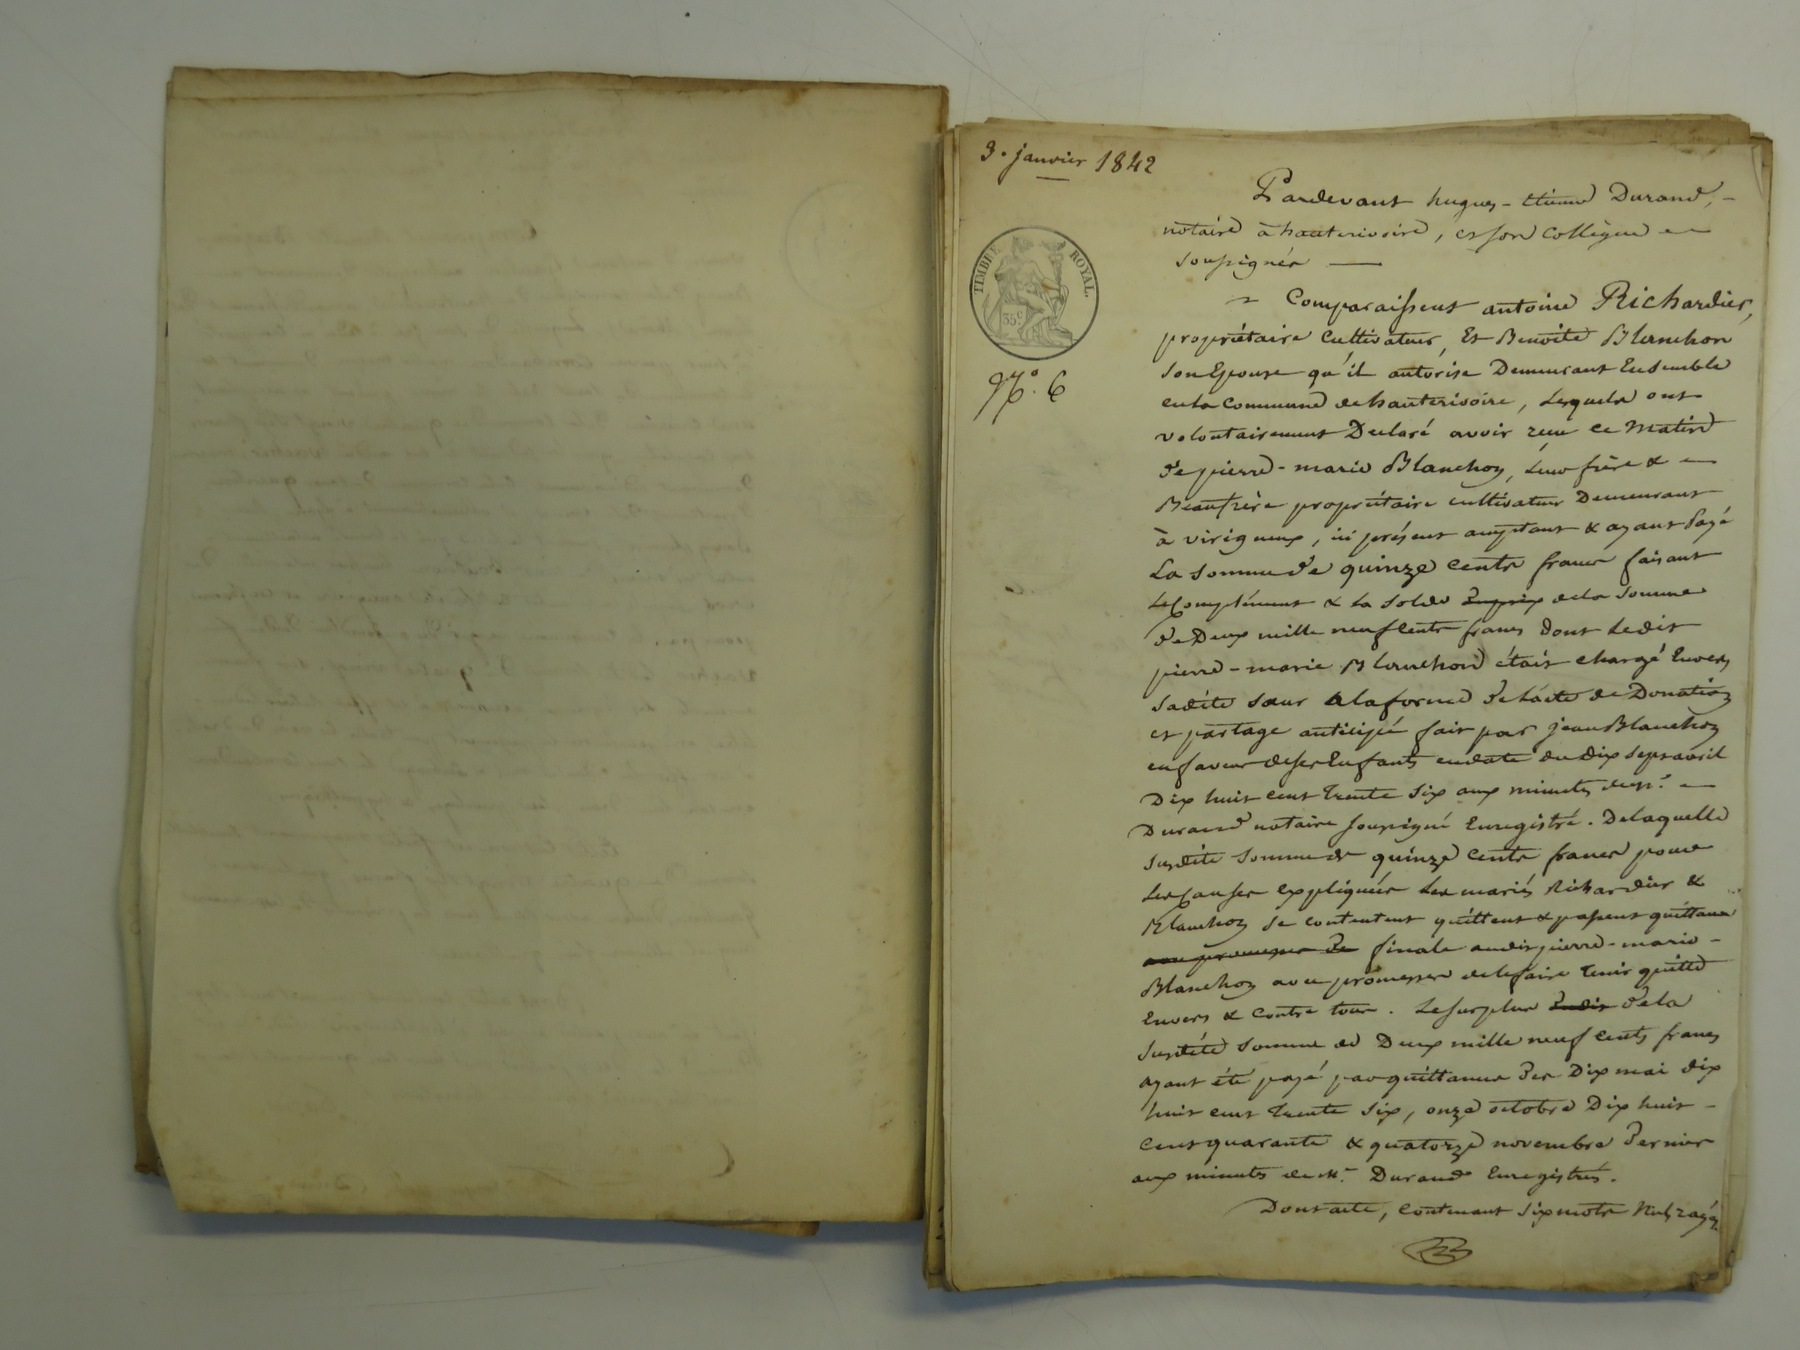 3. janvier 1842
TIMBRE ROYAL.
35 c
N.° 6
Pardevant hugues-etienne Durand, -
notaire à hauterivoire, et son Collègue
soussignés
Comparaissent antoine Richardier,
propriétaire cultivateur, Et Benoite Blanchon
son Epouse qu'il autorise Demeurant Ensemble
en la Commune de hauterivoire, Lesquels ont
volontairement Declaré avoir reçu ce matin
de pierre-marie Blanchon, Leur frère &
Beaufrère propriétaire cultivateur Demeurant
à virigneux, ici présent acceptant & ayant Payé
La somme de quinze cents francs faisant
Le Complément & La Solde du prix de la Somme
de Deux mille neuf Cents francs Dont Ledit
pierre-marie Blanchon était chargé Envers
Sadite sœur a la forme de L'acte de Donation
et partage anticipé fait par jean Blanchon
en faveur de ses Enfants en date du dix sept avril
Dix huit cent trente six aux minutes de M.e
Durand notaire soussigné Enregistré. De laquelle
susdite somme de quinze Cents francs pour
Les Causes expliquées Les mariés Richardier &
Blanchon se contentent quittent & passent quittance
avec promesse de finale audit pierre-marie -
Blanchon avec promesse de le faire tenir quitte
Envers & Contre tous. Le surplus dudit de la
susdite somme de Deux mille neuf Cents francs
ayant été payé par quittances des Dix mai dix
huit cent trente six, onze octobre Dix huit -
Cent quarante & quatorze novembre Dernier
aux minutes de M.e Durand Enregistrés.
Dont acte, contenant six mots nuls rayés.